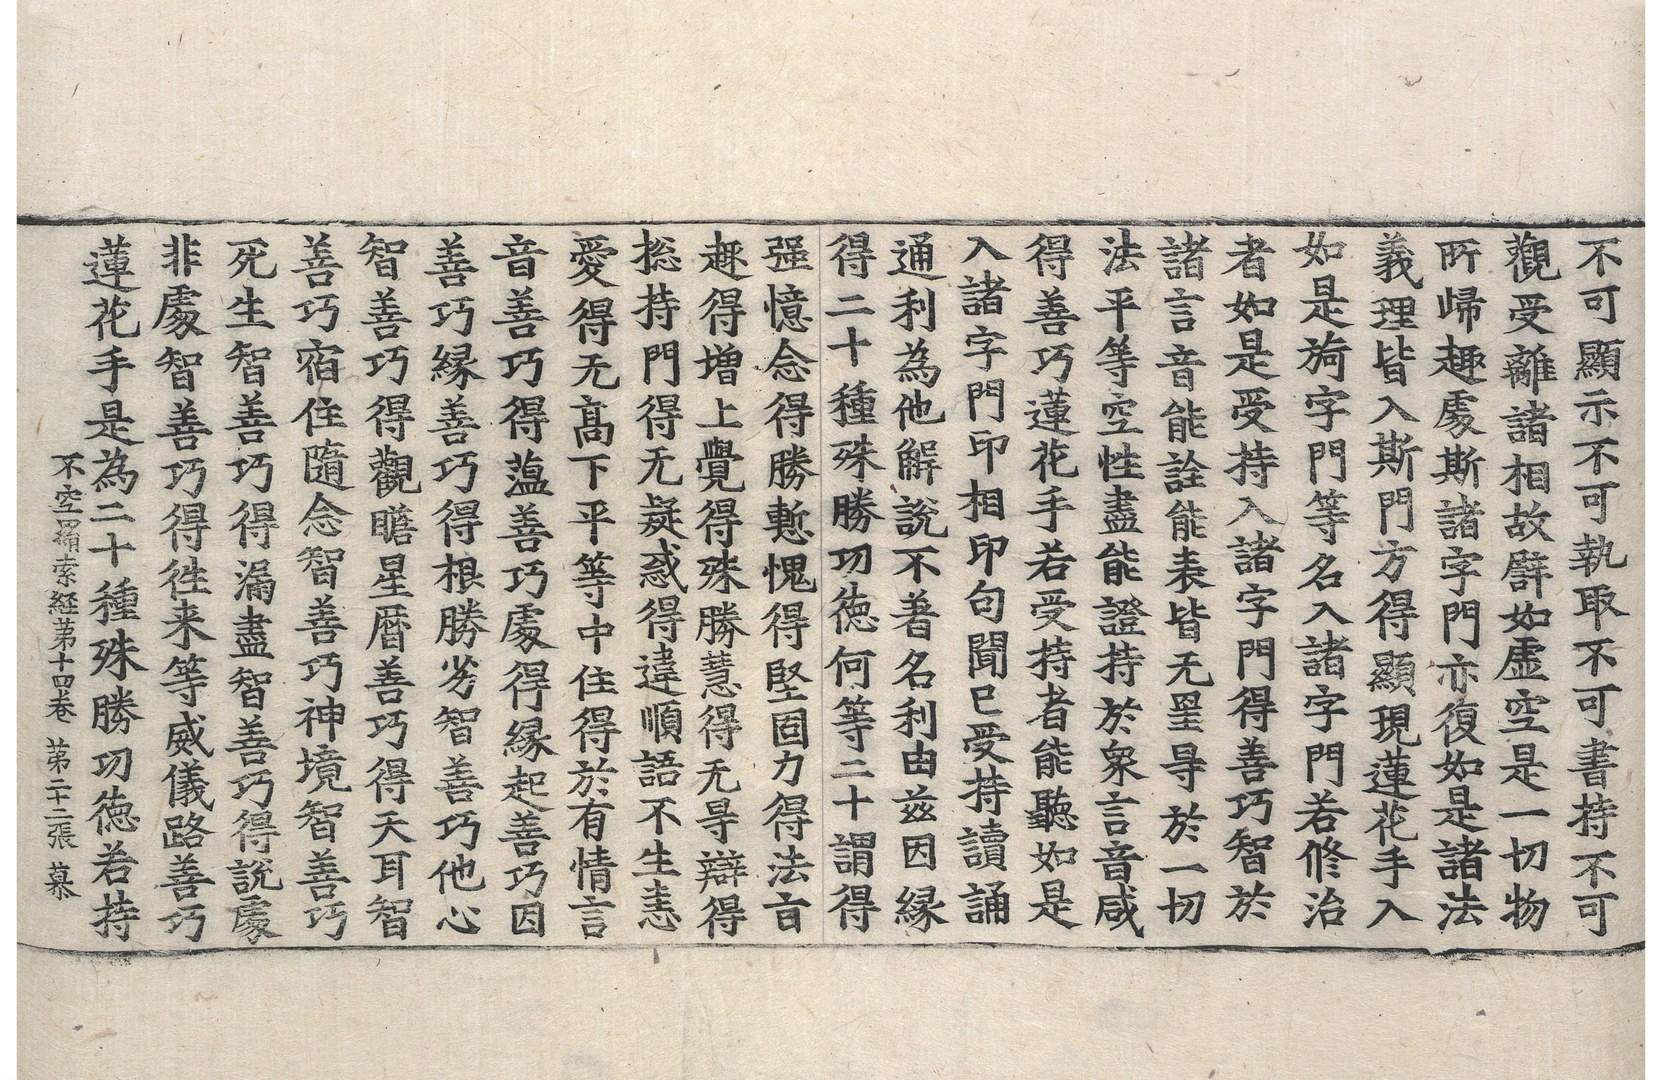 不可顯示不可執取不可書持不可
觀受離諸相故譬如虛空是一切物
所歸趣處斯諸字門亦復如是諸法
義理皆入斯門方得顯現蓮花手入
如是䄡字門等名入諸字門若修治
者如是受持入諸字門得善巧智於
諸言音能詮能表皆无罣㝵於一切
法平等空性盡能證持於衆言音咸
得善巧蓮花手若受持者能聽如是
入諸字門印相印句聞已受持讀誦
通利為他解說不著名利由茲因緣
得二十種殊勝功徳何等二十謂得
强憶念得勝慙愧得堅固力得法㫖
趣得增上覺得殊勝慧得无㝵辯得
捴持門得无疑惑得違順語不生恚
愛得无髙下平等中住得於有情言
音善巧得薀善巧處得緣起善巧因
善巧緣善巧得根勝劣智善巧他心
智善巧得觀瞻星曆善巧得天耳智
善巧宿住隨念智善巧神境智善巧
死生智善巧得漏盡智善巧得說處
非處智善巧得徃来等威儀路善巧
蓮花手是為二十種殊勝功徳若持
不空羂索経苐十四卷 苐二十二張 慕